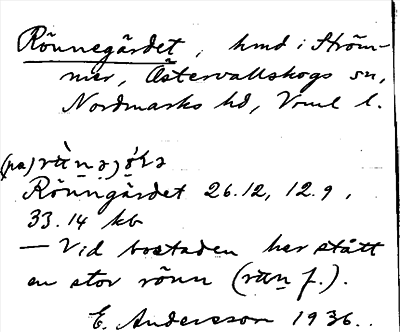 Rönnegärdet, hmd i Ström-
mer, Östervallskogs sn,
Nordmarks hd, Vrml l.
(pa)
Rönngärdet 26.12, 12.9,
33.14 kb
— Vid bostaden har stått
en stor rönn (          f.).
E. Andersson 1936.